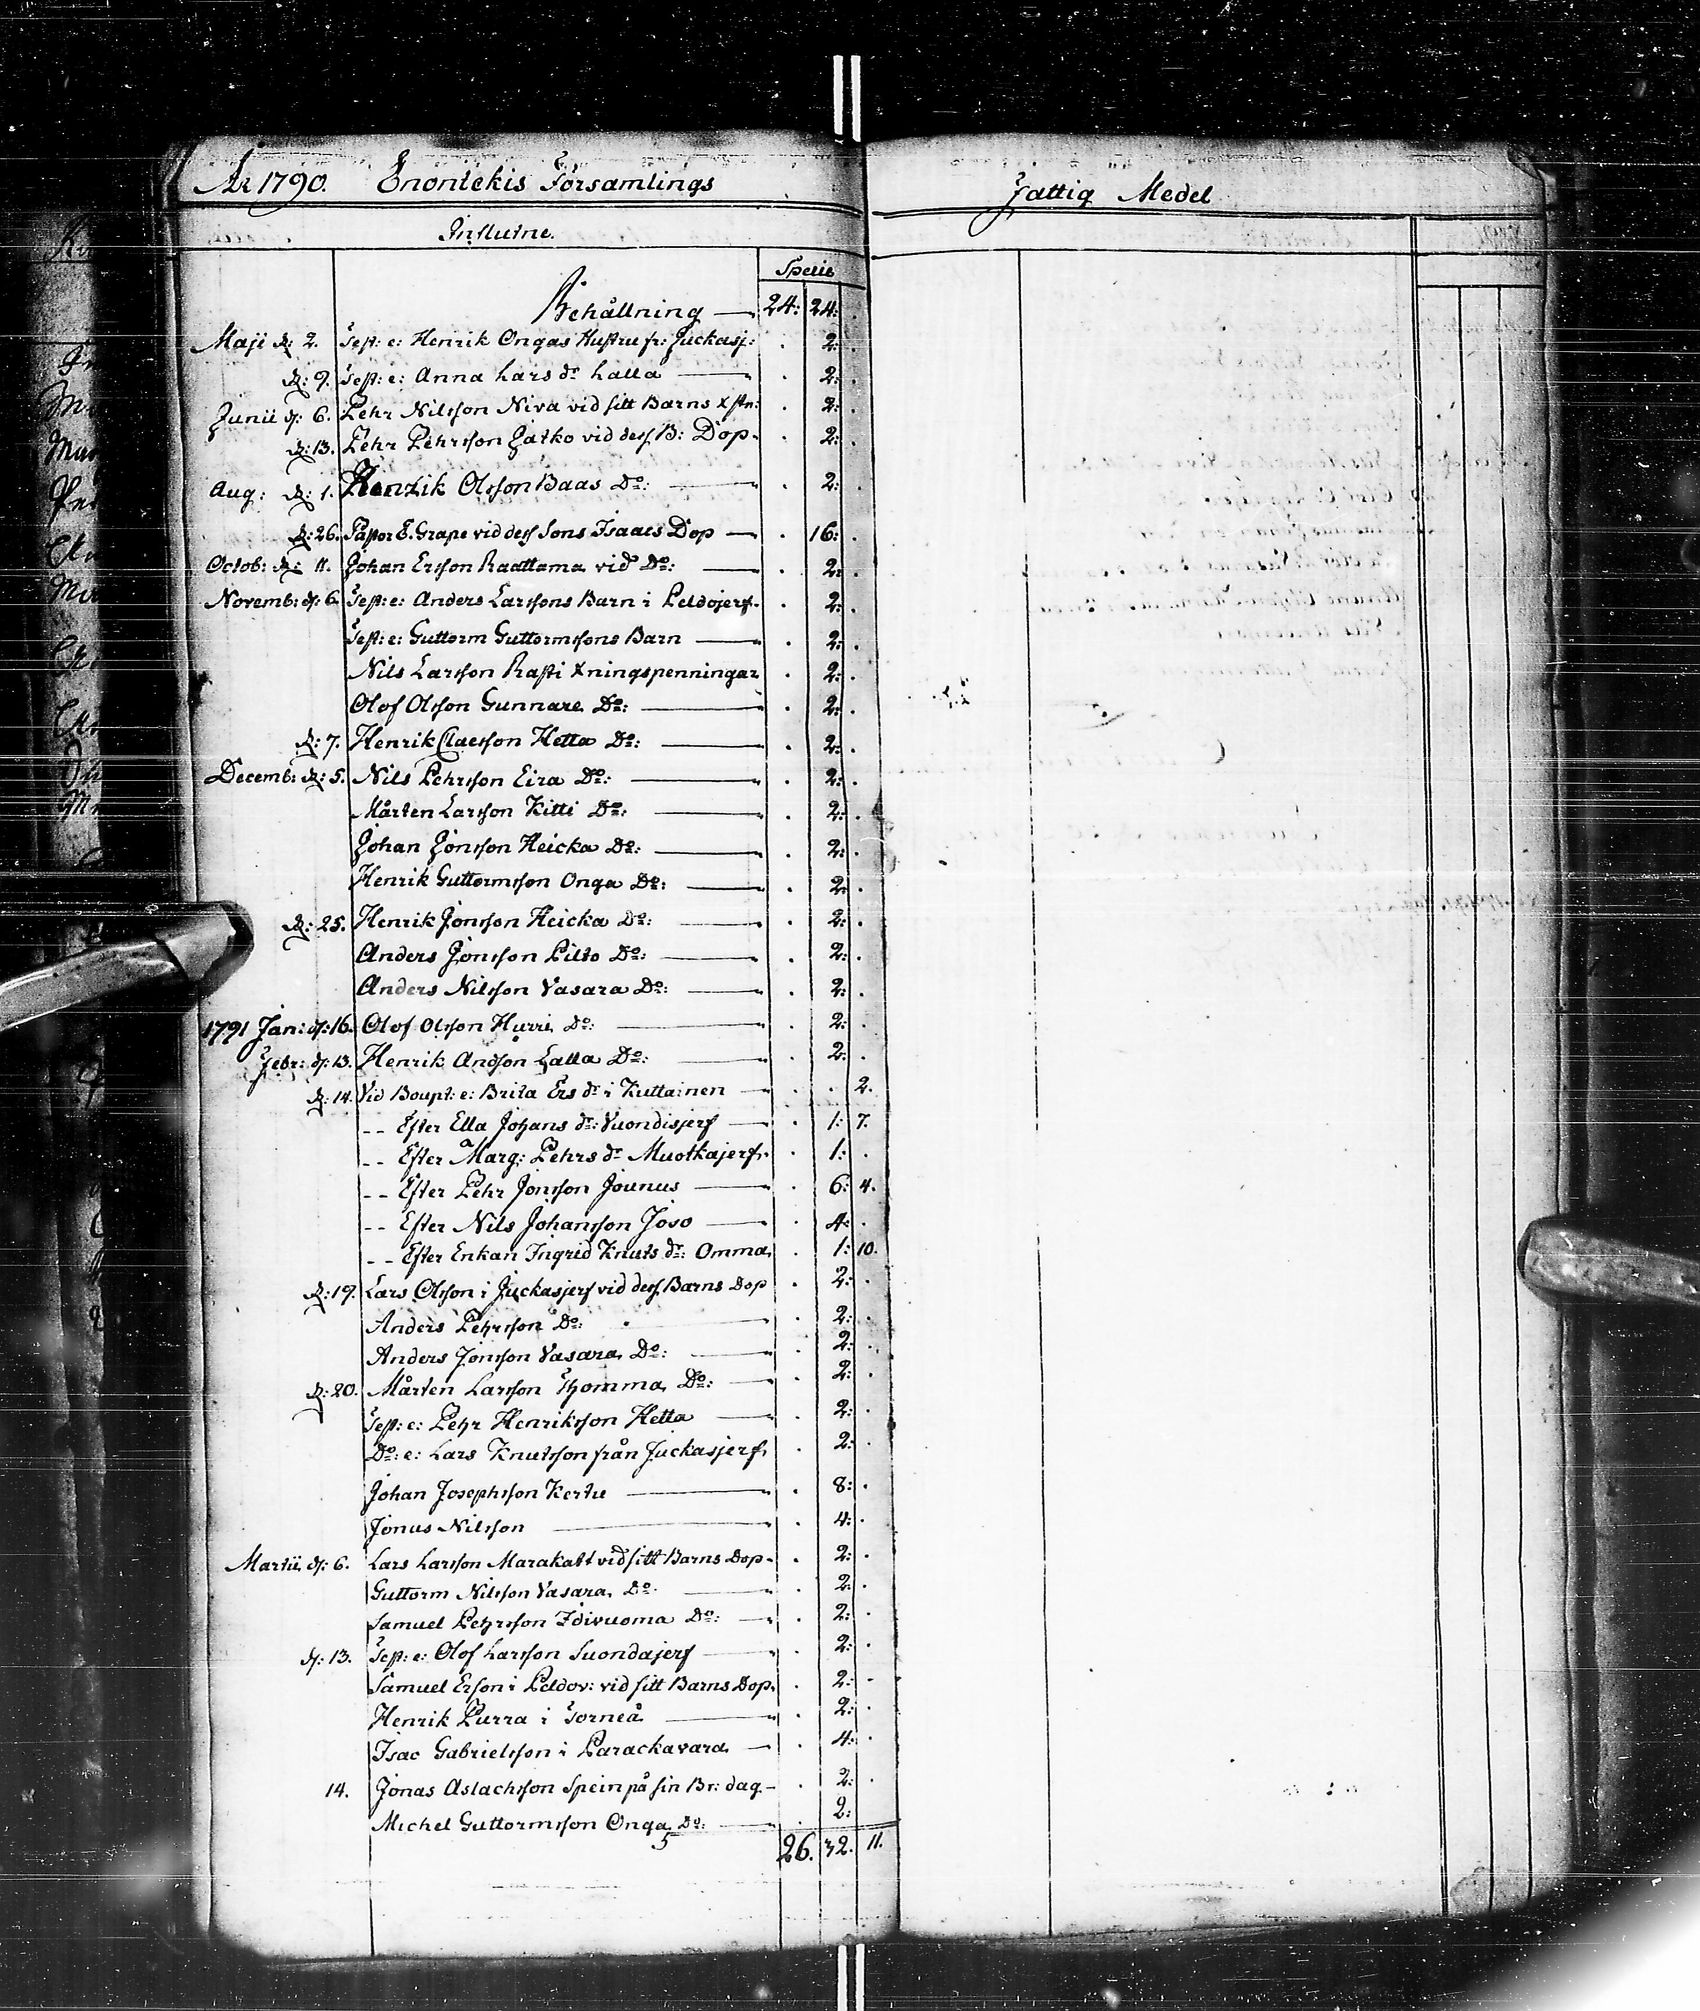 År 1790. Enontekis Församlings Fattig Medel
Influtne.
Specie
Behållning — 24: 24: .
Maji d: 2. Test: e: Henrik Ongas Hustru fr: Juckasj: . 2: .
d: 9. Test: e: Anna Lars dr Lalla — . 2: .
Junii d: 6. Pehr Nilsson Niva vid sitt Barns xstn: . 2: .
d: 13. Pehr Pehrsson Jatko vid dess B: Dop . 2: .
Aug: d: 1. Henrik Olsson Baas Do: — . 2: .
d: 26. Pastor E. Grape vid dess Sons Isaacs Dop — . 16: .
Octob: d: 11. Johan Ersson Raattama vid Do: — . 2: .
Novemb: d: 6. Test: e: Anders Larssons Barn i Peldojerf . 2: .
Test: e: Guttorm Guttormssons Barn — . 2: .
Nils Larsson Rasti xningspenningar . 2: .
Olof Olsson Gunnare Do: — . 2: .
d: 7. Henrik Claesson Hetta Do: — . 2: .
Decemb: d: 5. Nils Pehrsson Eira Do: — . 2: .
Mårten Larsson Kitti Do: — . 2: .
Johan Jonsson Heicka Do: — . 2: .
Henrik Guttormsson Onga Do: — . 2: .
d: 25. Henrik Jonsson Heicka Do: — . 2: .
Anders Jonsson Pilto Do: — . 2: .
Anders Nilsson Vasara Do: — . 2: .
1791 Jan: d: 16. Olof Olsson Hurri Do: — . 2: .
Febr: d: 13. Henrik Andsson Lalla Do: — . 2: .
d: 14. Vid Boupt: e: Brita Ers dr i Kuttainen — . . 2.
-- Efter Ella Johans dr: Vuondisjerf — . 1: 7.
-- Efter Marg: Pehrs dr Muotkajerf . 1: .
-- Efter Pehr Jonsson Jounus — . 6: 4.
-- Efter Nils Johansson Joso — . 4: .
-- Efter Enkan Ingrid Knuts dr: Omma . 1: 10.
d: 19. Lars Olsson i Juckasjerf vid dess Barns Dop . 2: .
Anders Pehrsson Do: — . 2: .
Anders Jonsson Vasara Do: — . 2: .
d: 20. Mårten Larsson Thomma Do: — . 2: .
Test: e: Pehr Henriksson Hetta — . 2: .
Do: e: Lars Knutsson från Juckasjerf . 2: .
Johan Josephsson Kertu — . 8: .
Jonus Nilsson — . 4: .
Martii d: 6. Lars Larsson Marakatt vid sitt Barns Dop . 2: .
Guttorm Nilsson Vasara Do: — . 2: .
Samuel Pehrsson Idivuoma Do: — . 2: .
d: 13. Test: e: Olof Larsson Suondajerf — . 2: .
Samuel Ersson i Peldov: vid sitt Barns Dop . 2: .
Henrik Purra i Torneå — . 2: .
Isac Gabrielsson i Parackavara — . 4: .
14. Jonas Aslachsson Spein på sin Br: dag . 2: .
Michel Guttormsson Onga Do: — . 2:
26. 32. 11.